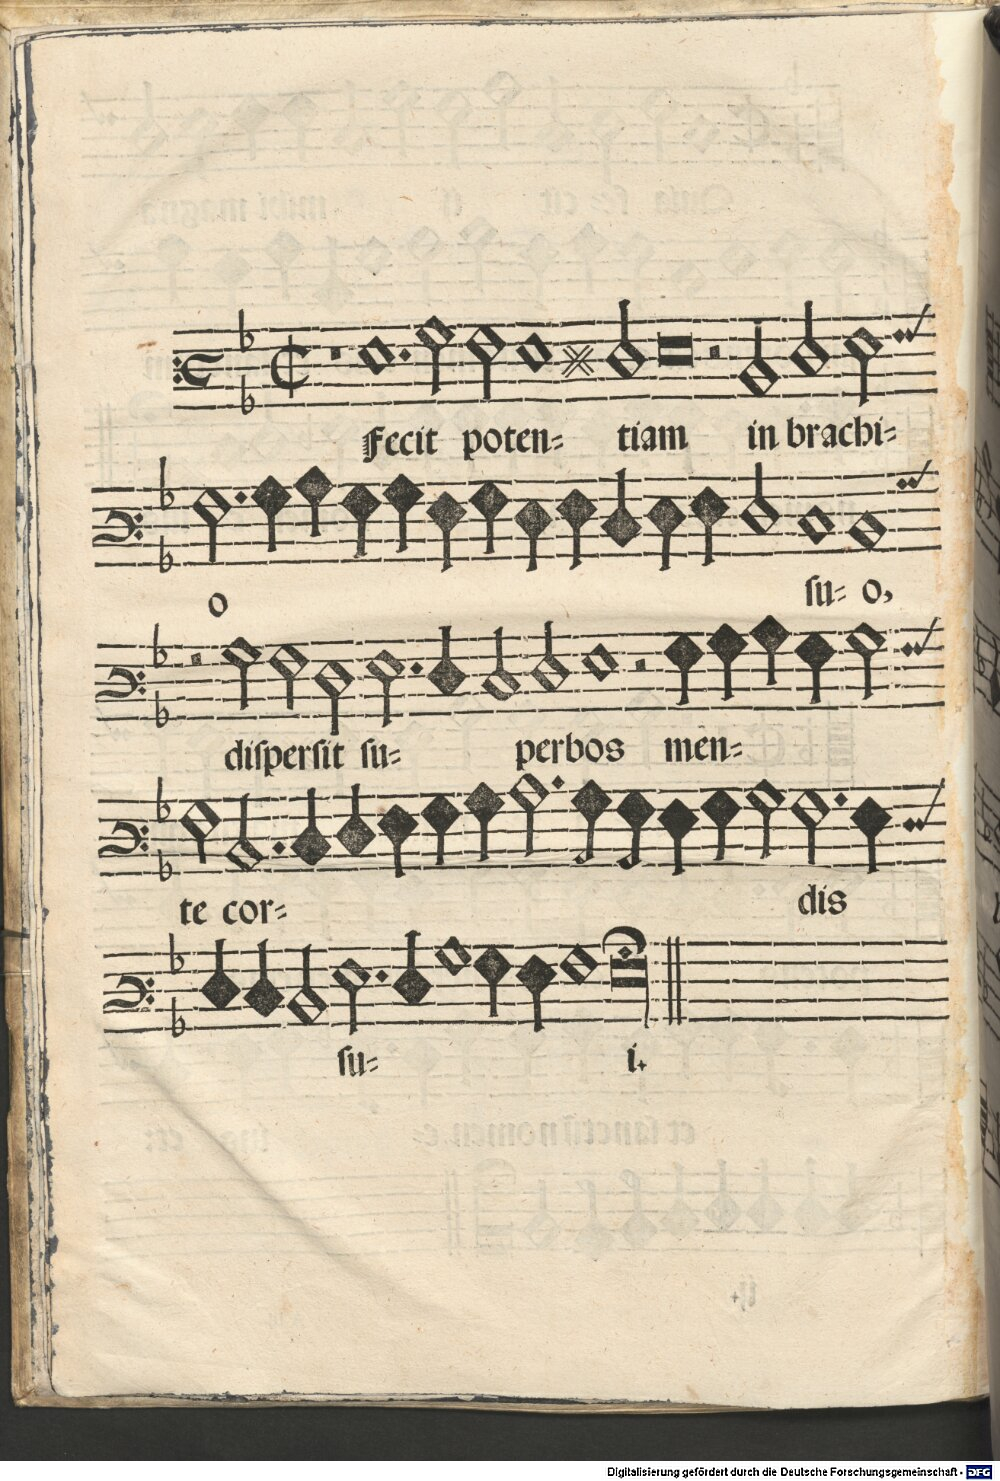 Fecit poten= tiam in brachi=
o su= o,
dispersit su= perbos men=
te cor= dis
su= i.
Digitalisierung gefördert durch die Deutsche Forschungsgemeinschaft - DFG